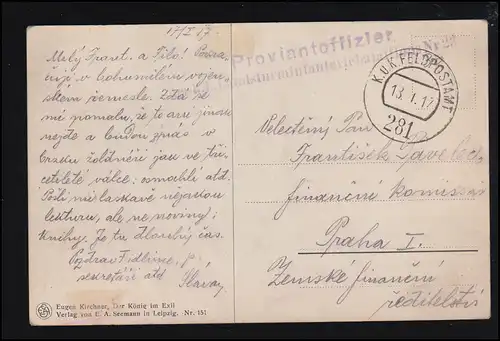 17/I 17
Milý Frant. a Filo! Pozra-
žuji v bohumilém vojen-
ském řemesle. Zdá se
mi pomalu, že to ani jinou
nejde a budou z nás v
Evaku žoldnéři jako ve tři-
cetileté válce: osmahlí atd.
Pošli mi laskavě nějakou
lekturu, ale ne noviny;
knihy. Je tu dlouhý čas.
Pozdrav Fidlime,
sekretáři atd Slávaj
Proviantoffizier
Nr 2
K.U.K. FELDPOSTAMT
13. I. 17
281
Velectěný Pan
František Pavelec
finanční komisař
Praha I.
Zemské finanční
ředitelství
Eugen Kirchner, Der König im Exil
Verlag von E. A. Seemann in Leipzig. Nr. 151